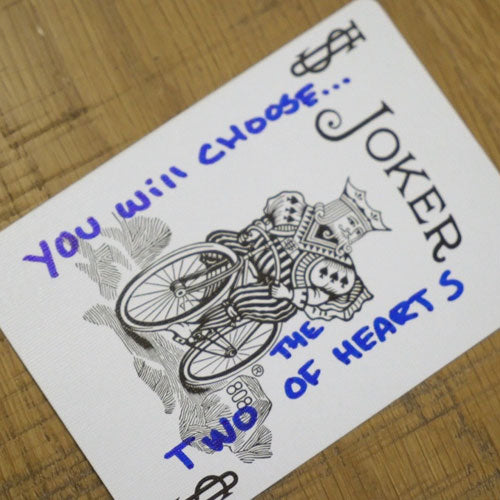 JOKER
YOU Will CHOOSE...
THE
TWO OF HEARTS
808